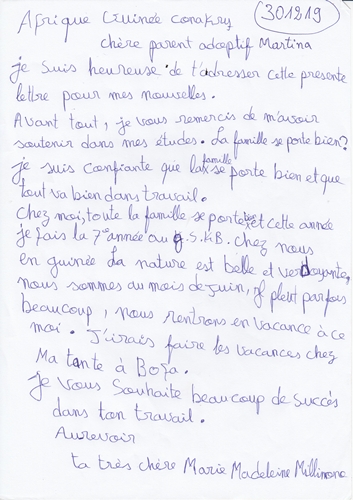 Afrique Guinée conakry
301219
chère parent adoptif Martina
je suis heureuse de t'adresser cette presente
lettre pour mes nouvelles.
Avant tout, je vous remercis de m'avoir
soutenir dans mes études. La famille se porte bien?
je suis confiante que la famille se porte bien et que
tout va bien dans travail.
Chez moi, toute la famille se porte et cette année
je fais la 7e année au G.S.KB. chez nous
en guinée La nature est belle et verdoyante,
nous sommes au mois de juin, il pleut parfois
beaucoup, nous rentrons en vacance à ce
moi. J'irais faire les vacances chez
Ma tante à Boffa.
je vous souhaite beaucoup de succès
dans ton travail.
Aurevoir
ta très chère Marie Madeleine Millimono